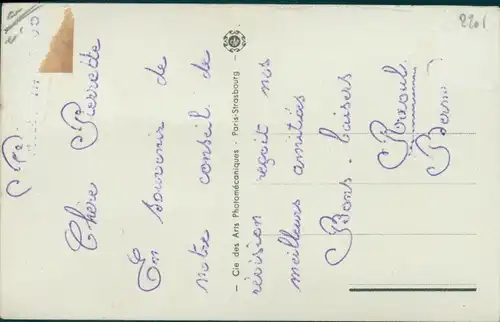 Chère Pierrette
En souvenir de
notre conseil de
révision reçoit nos
meilleurs amitiés
Bons-baisers
Raoul
— Cie des Arts Photomécaniques - Paris-Strasbourg —
2201